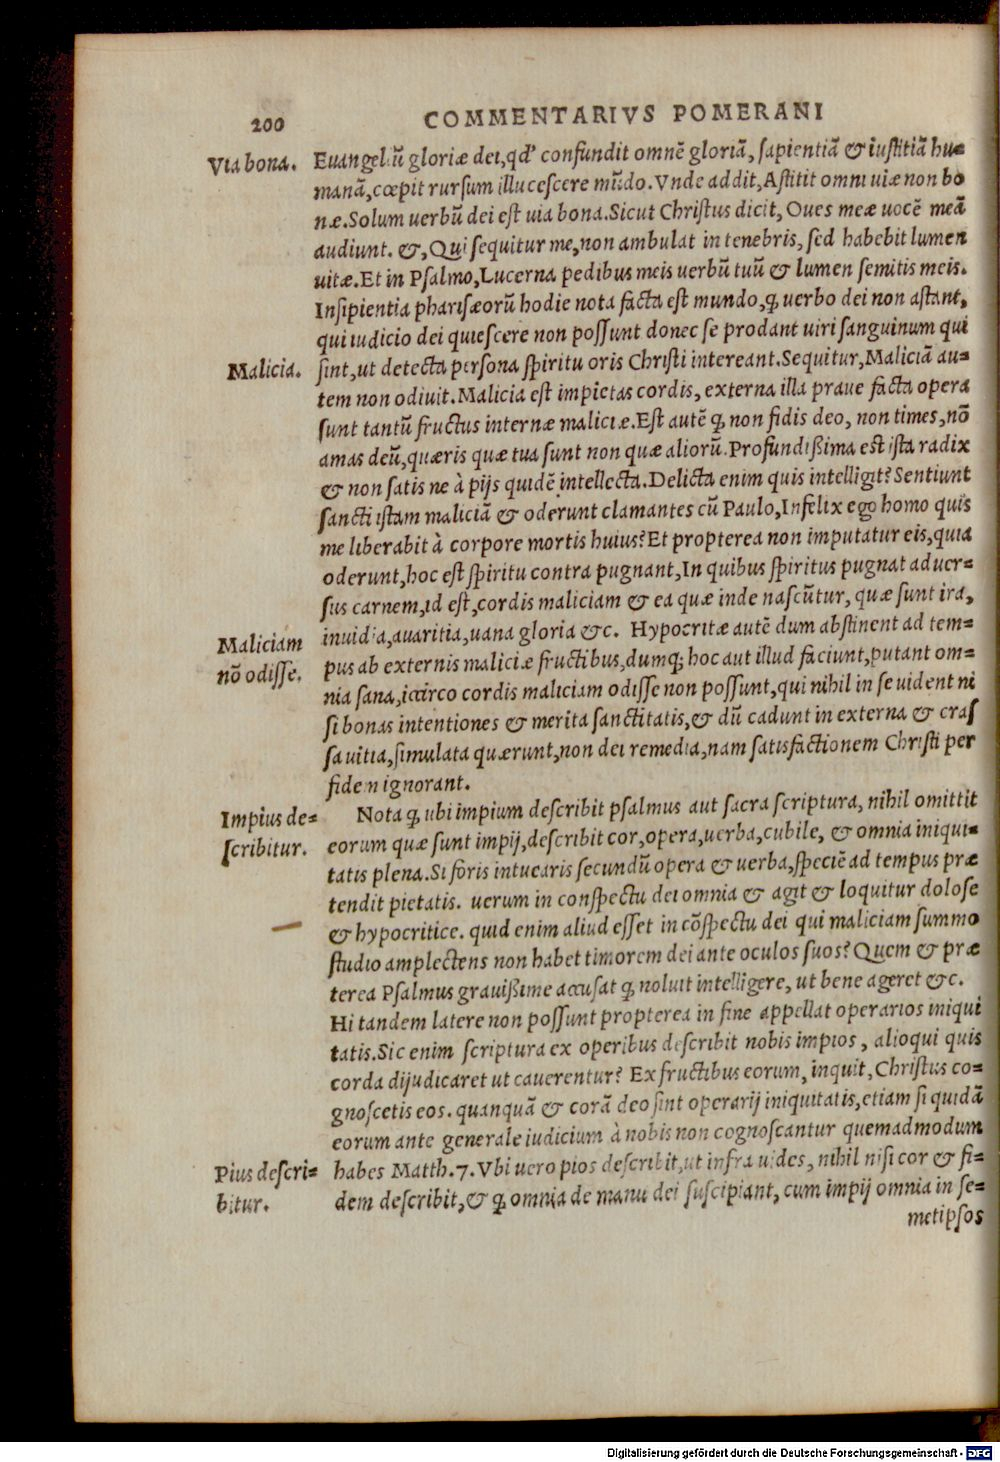 200 COMMENTARIVS POMERANI
Via bona. Euangeliũ gloriæ dei, qd' confundit omnẽ gloriã, ſapientiã & iuſtitiã hu=
manã, cœpit rurſum illuceſcere mũdo. Vnde addit, Aſtitit omni uiæ non bo
næ. Solum uerbũ dei eſt uia bona. Sicut Chriſtus dicit, Oues meæ uocẽ meã
audiunt. &, Qui ſequitur me, non ambulat in tenebris, ſed habebit lumen
uitæ. Et in Pſalmo, Lucerna pedibus meis uerbũ tuũ & lumen ſemitis meis.
Inſipientia phariſæorũ hodie nota facta eſt mundo, ꝙ uerbo dei non aſtant,
qui iudicio dei quieſcere non poſſunt donec ſe prodant uiri ſanguinum qui
Malicia. ſint, ut detecta perſona ſpiritu oris Chriſti intereant. Sequitur, Maliciã au=
tem non odiuit. Malicia eſt impietas cordis, externa illa praue facta opera
ſunt tantũ fructus internæ maliciæ. Eſt autẽ ꝙ non fidis deo, non times, nõ
amas deũ, quæris quæ tua ſunt non quæ aliorũ. Profundißima eſt iſta radix
& non ſatis ne à pijs quidẽ intellecta. Delicta enim quis intelligit? Sentiunt
ſancti iſtam maliciã & oderunt clamantes cũ Paulo, Infelix ego homo quis
me liberabit à corpore mortis huius? Et propterea non imputatur eis, quia
oderunt, hoc eſt ſpiritu contra pugnant, In quibus ſpiritus pugnat aduer=
ſus carnem, id eſt, cordis maliciam & ea quæ inde naſcũtur, quæ ſunt ira,
inuidia, auaritia, uana gloria &c. Hypocritæ autẽ dum abſtinent ad tem=
Maliciam nõ odiſſe. pus ab externis maliciæ fructibus, dumq; hoc aut illud faciunt, putant om=
nia ſana, iccirco cordis maliciam odiſſe non poſſunt, qui nihil in ſe uident ni
ſi bonas intentiones & merita ſanctitatis, & dũ cadunt in externa & craſ
ſa uitia, ſimulata quærunt, non dei remedia, nam ſatisfactionem Chriſti per
fidem ignorant.
Impius de=
ſcribitur. Nota ꝙ ubi impium deſcribit pſalmus aut ſacra ſcriptura, nihil omittit
eorum quæ ſunt impij, deſcribit cor, opera, uerba, cubile, & omnia iniqui=
tatis plena. Si foris intuearis ſecundũ opera & uerba, ſpeciẽ ad tempus præ
tendit pietatis. uerum in conſpectu dei omnia & agit & loquitur doloſe
& hypocritice. quid enim aliud eſſet in cõſpectu dei qui maliciam ſummo
ſtudio amplectens non habet timorem dei ante oculos ſuos? Quem & præ
terea Pſalmus grauißime accuſat ꝙ noluit intelligere, ut bene ageret &c.
Hi tandem latere non poſſunt propterea in fine appellat operarios iniqui
tatis. Sic enim ſcriptura ex operibus deſcribit nobis impios, alioqui quis
corda dijudicaret ut cauerentur? Ex fructibus eorum, inquit, Chriſtus co=
gnoſcetis eos. quanquã & corã deo ſint operarij iniquitatis, etiam ſi quidã
eorum ante generale iudicium à nobis non cognoſcantur quemadmodum
Pius deſcri=
bitur. habes Matth. 7. Vbi uero pios deſcribit, ut infra uides, nihil niſi cor & fi=
dem deſcribit, & ꝙ omnia de manu dei ſuſcipiant, cum impij omnia in ſe=
metipſos
Digitalisierung gefördert durch die Deutsche Forschungsgemeinschaft - DFG